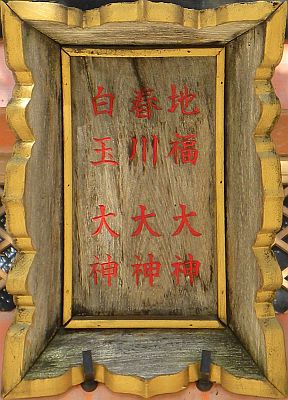 地福大神
春川大神
白玉大神